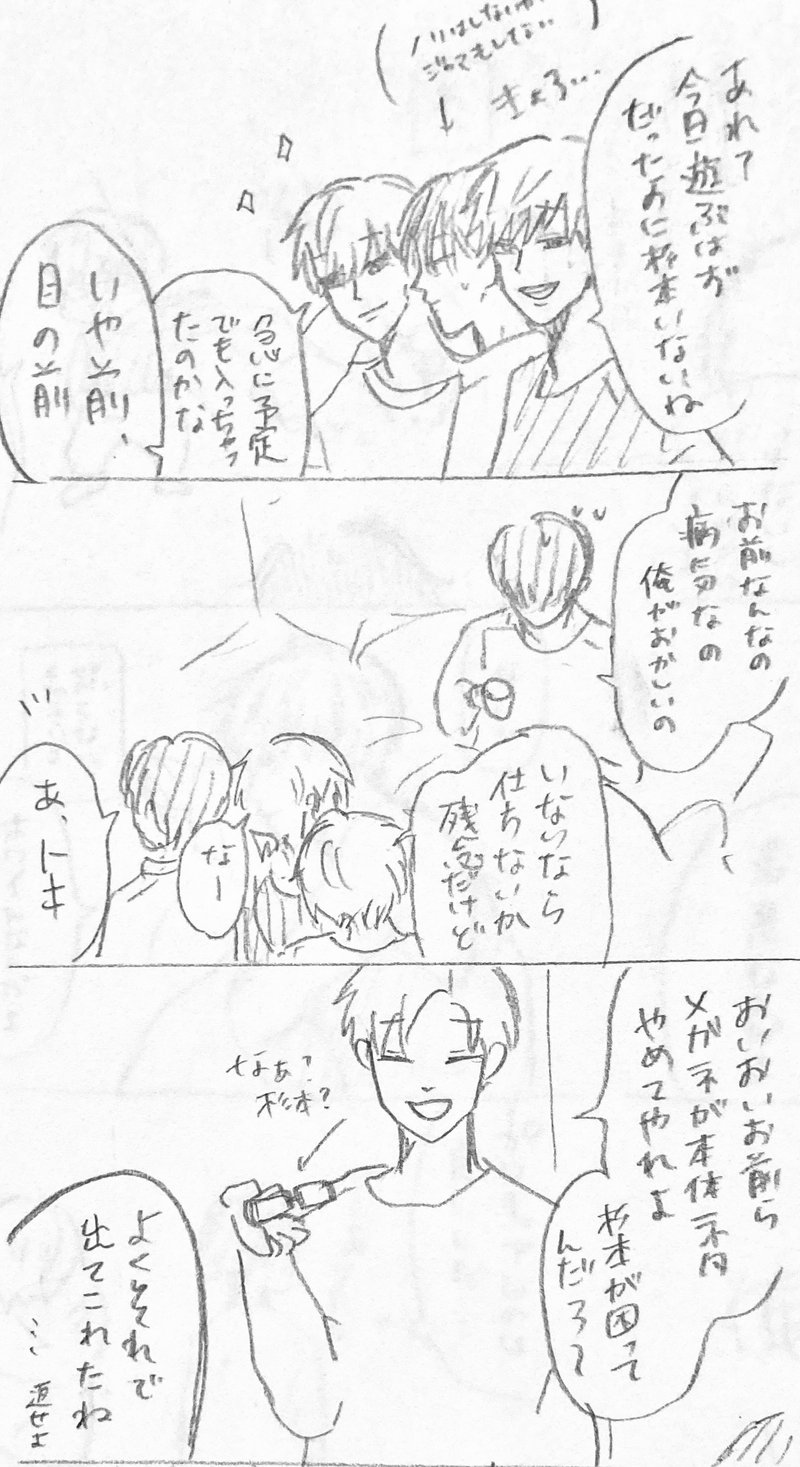 あれ?
今日遊ぶはず
だったのに杉本いないね
ノリはしないが
きょろ…
急に予定
でも入っちゃっ
たのかな
いや前、
目の前
お前なんなの
病気なの
俺がおかしいの
いないなら
仕方ないか
残念だけど
なー
あ、トキ
おいおいお前ら
メガネが本体ネタ
やめてやれよ
杉本が困って
んだろ?
なぁ?
杉本?
よくそれで
出てこれたね
返せよ